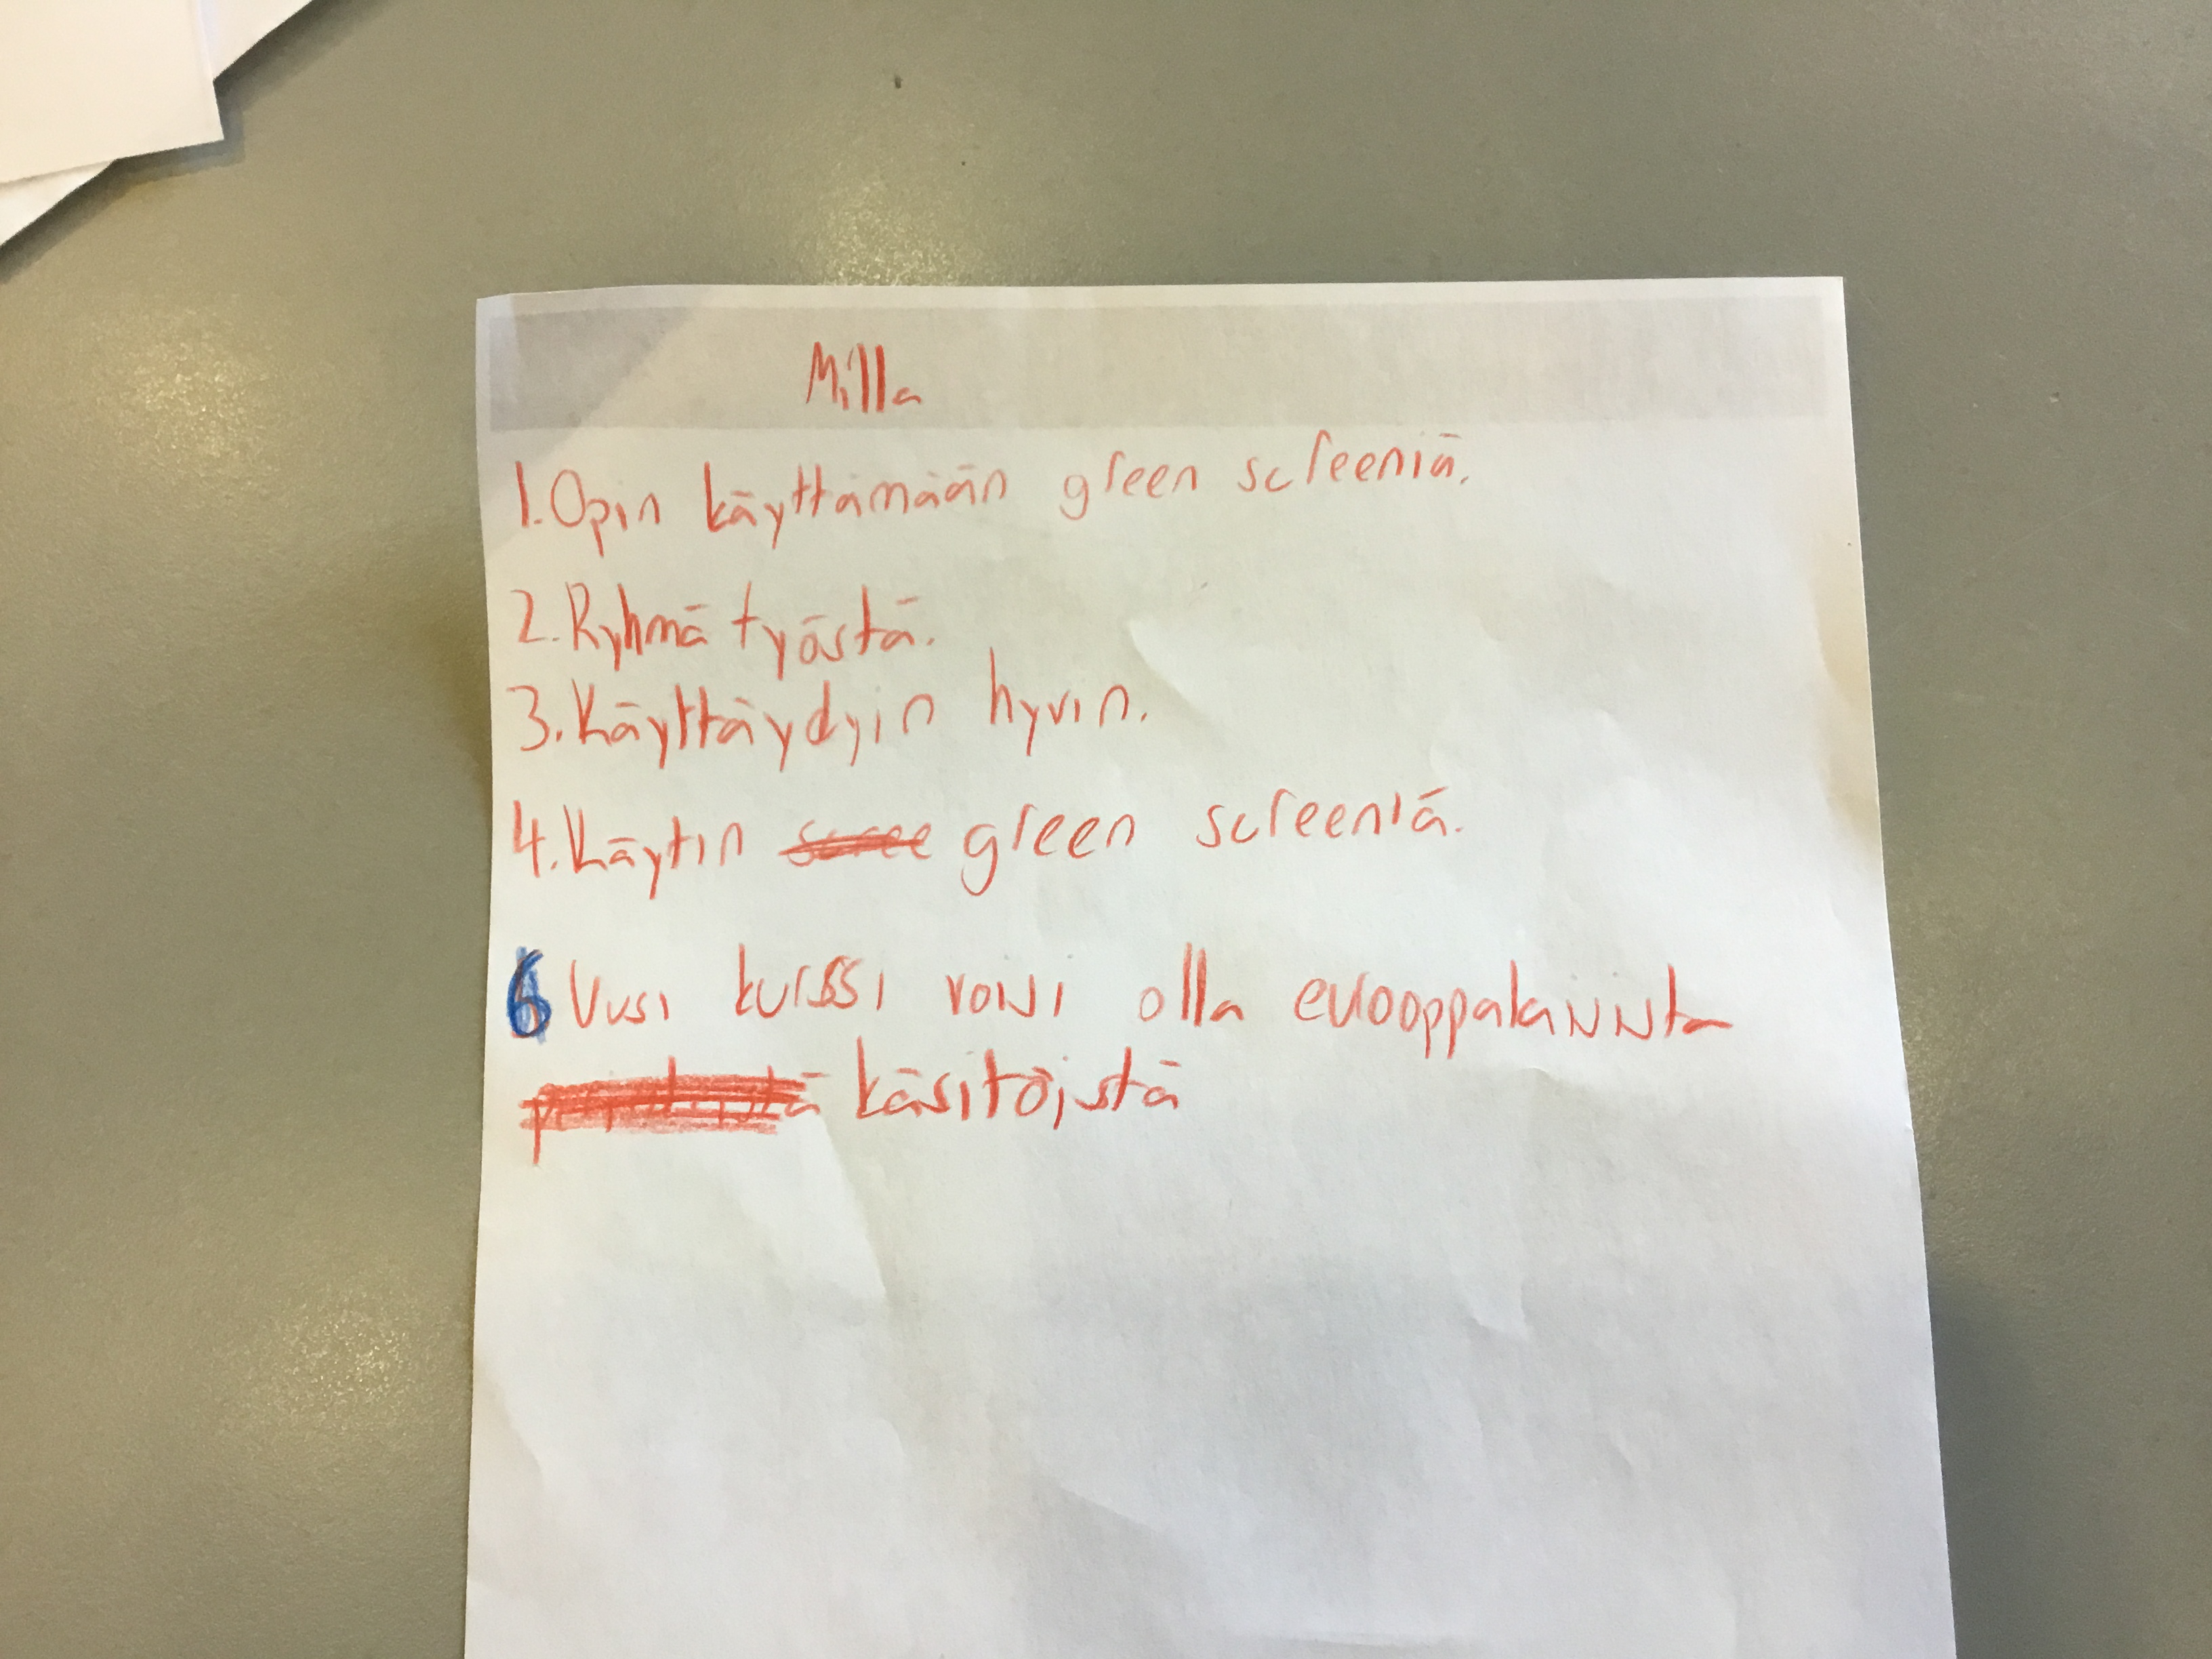 Milla
1. Opin käyttämään green screeniä.
2. Ryhmä työstä.
3. Käyttäydyin hyvin.
4. Käytin green screeniä.
6 Uusi kurssi voisi olla
käsitöistä